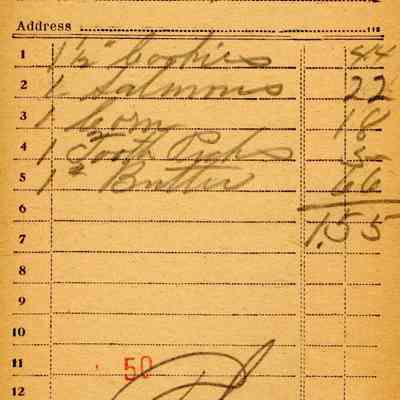 Address
1 1½" Cookies 44
2 1 Salmons 22
3 1 Corn 18
4 1 Tooth Picks 5
5 1" Butter 66
6
7 1.55
8
9
10
11 50
12